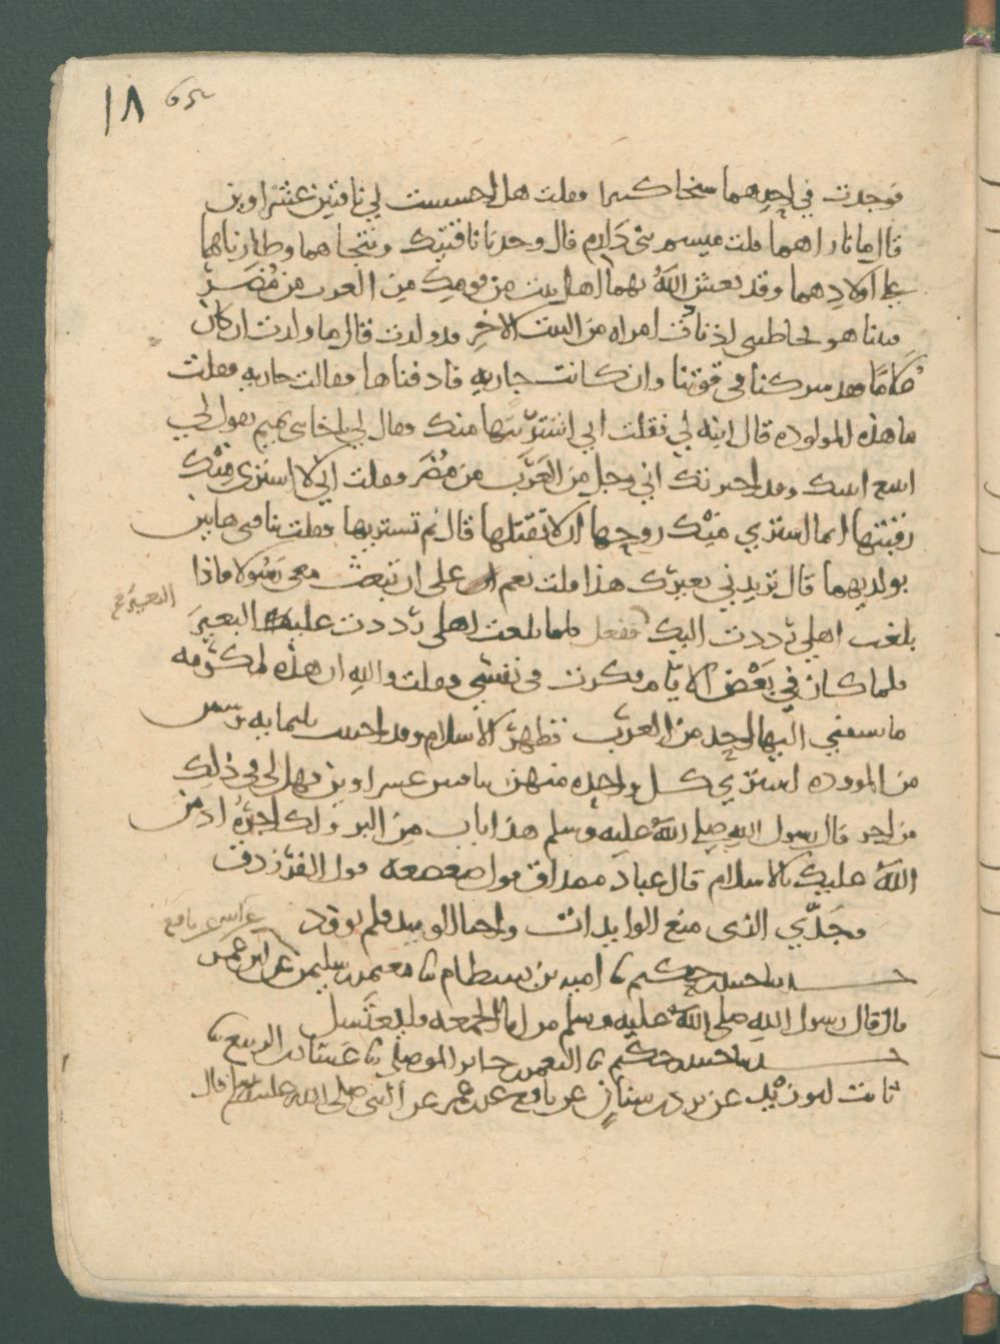 ١٨ ٦٥
فوجدت في احدهما شيخا كبيرا فقلت هل احسست لي ناقتين عشراوين
قال ما ناراهما قلت ميسم بني دارم قال وجدنا ناقتيك ونتجناهما وظارناهما
على اولادهما وقد نعش الله بهما اهل بيت من قومك من العرب من مضر
فبينا هو يخاطبني اذ نادت امراه من البيت الاخر قد ولدت قال ما ولدت ان كان
غلاما فقد شركنا في قوتنا وان كانت جاريه فادفناها فقالت جاريه فقلت
ما هذه المولوده قال ابنه لي فقلت اني اشتريتها منك فقال لي يا اخا بني تميم تقول لي
اتبيع ابنتك وقد اخبرتك اني رجل من العرب من مضر فقلت اني لا اشتري منك
رقبتها انما اشتري منك روحها ان لا تقتلها قال بم تشتريها فقلت بناقتي هاتين
بولديهما قال تزيدني بعيرك هذا قلت نعم على ان تبعث معي رسولا فاذا
بلغت اهلي رددت اليك ففعل فلما بلغت اهلي رددت عليه البعير
البعير
فلما كان في بعض الايام فكرت في نفسي فقلت والله ان هذه لمكرمه
ما سبقني اليها احد من العرب فظهر الاسلام وقد احييت
من الموده اشتري كل واحده منهن بناقتين عشراوين فهل لي في ذلك
من اجر قال رسول الله صلى الله عليه وسلم هذا باب من البر ولك اجره اذ من
الله عليك بالاسلام قال عباد ومصداق قول صعصعه قول الفرزدق
وجدي الذي منع الوايدات واحيا الوييد فلم يوقد
عن نافع
حدثنا حكيم نا اميه بن بسطام نا معتمر بن سليمن عن ابن عمر
قال قال رسول الله صلى الله عليه وسلم من اتا الجمعه فليغتسل
حدثنا حكيم نا النعمن الموصلي نا غسان بن الربيع نا
ثابت بن يزيد عن برد بن سنان عن نافع عن ابن عمر عن النبي صلى الله عليه وسلم قال